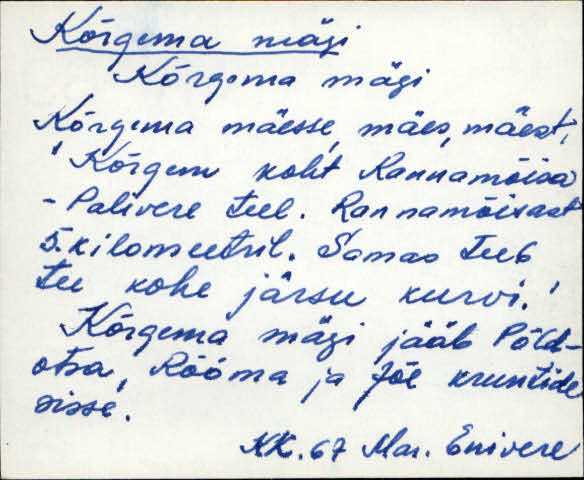 Kõrgema mägi
Kõrgema mägi
Kõrgema mäesse, mäes, mäest,
'Kõrgem koht Rannamõisa
- Palivere teel. Rannamõisast
5. kilomeetril. Samas teeb
tee kohe järsu kurvi.'
Kõrgema mägi jääb Põld-
otsa, Rööma ja Jõe kruntide
sisse.
KK. 67 Mar. Enivere